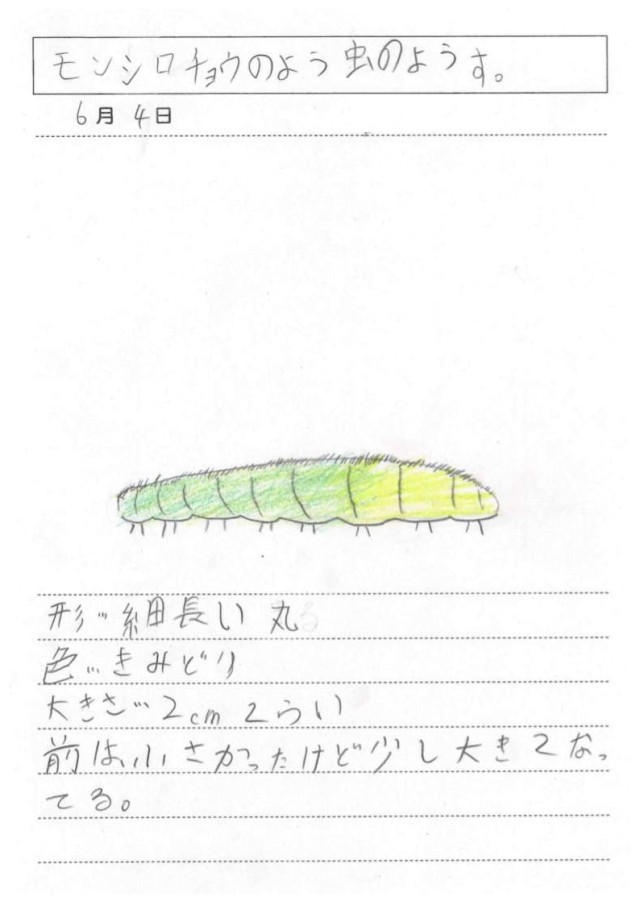 モンシロチョウのよう虫のようす。
6月 4日
形… 細長い 丸
色… きみどり
大きさ… 2cmくらい
前は小さかったけど少し大きくなっ
てる。